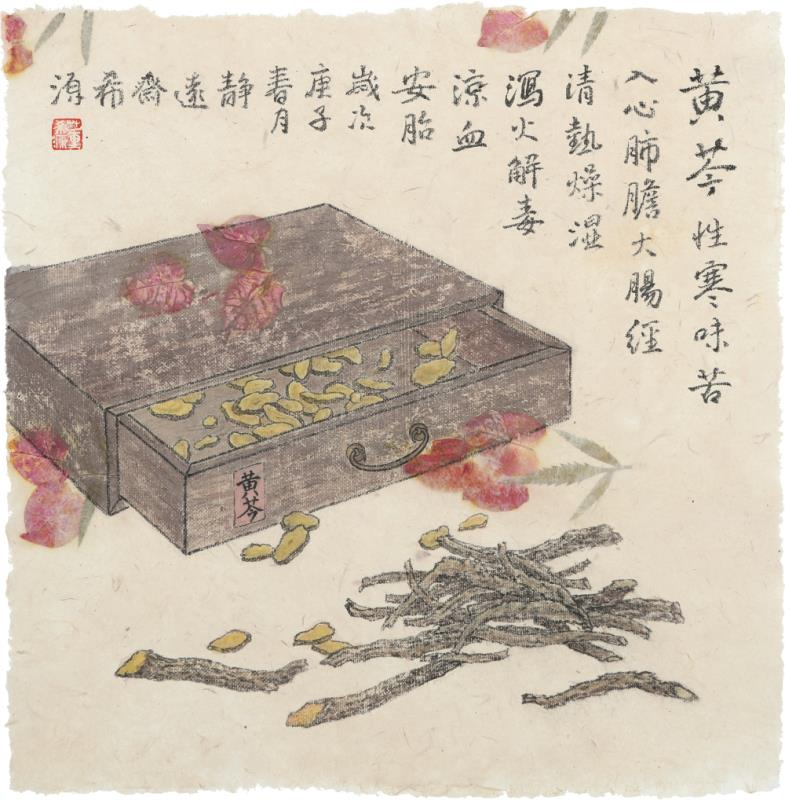 黃芩性寒味苦
入心肺膽大腸經
清熱燥濕
瀉火解毒
涼血
安胎
歲次
庚子
春月
靜
遠
齋
希
源
黃芩